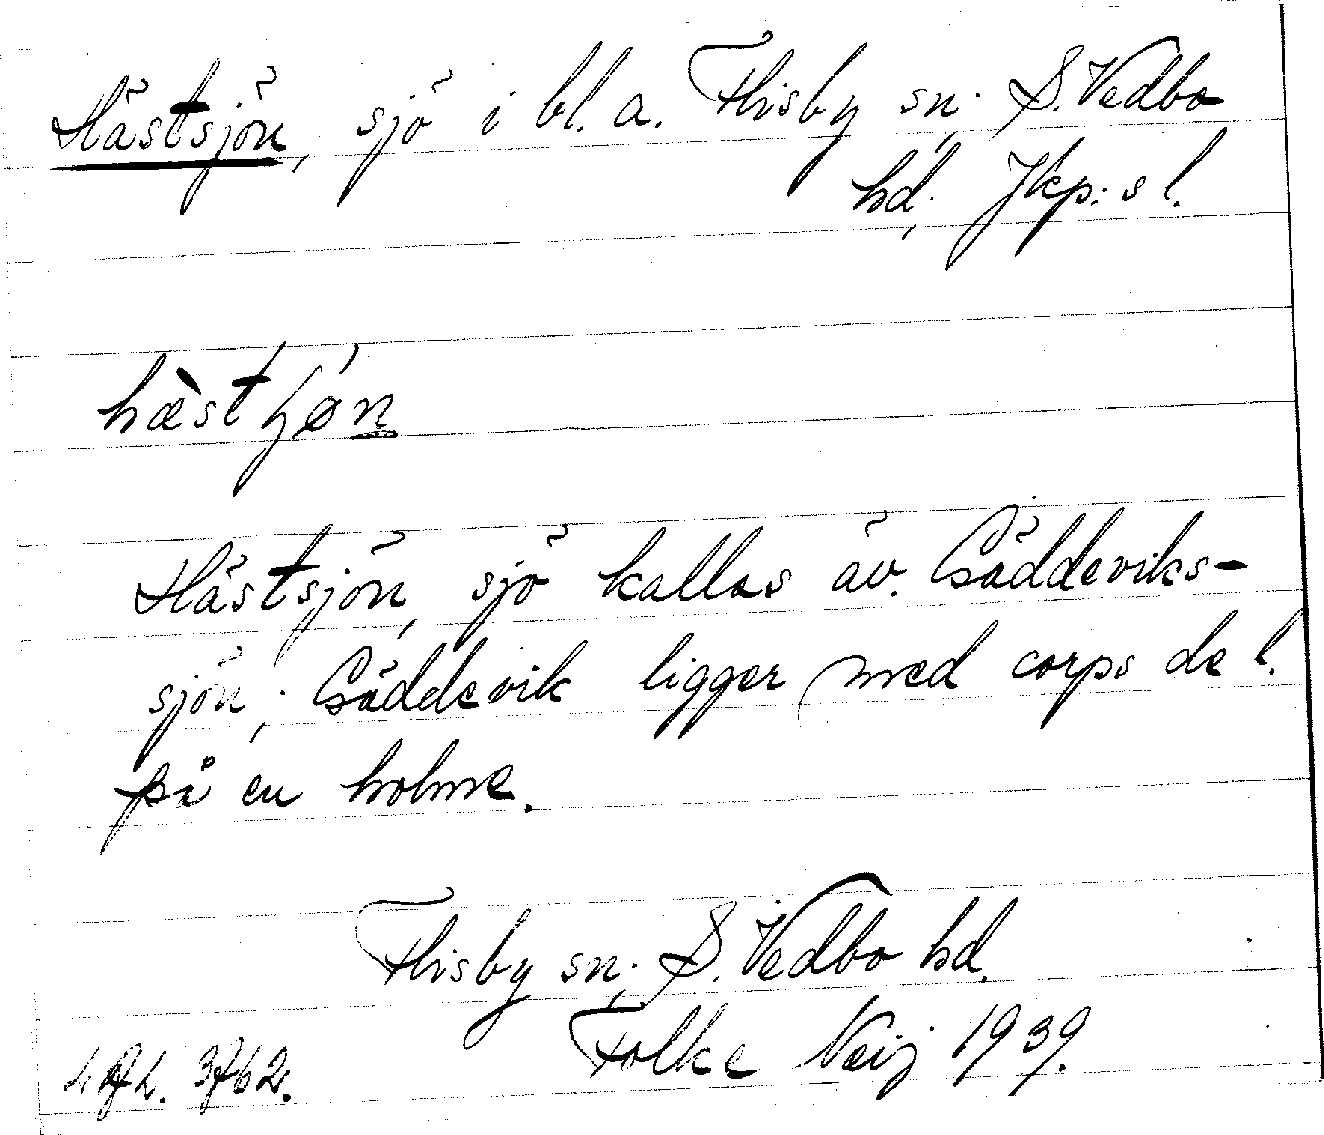 Hästsjön, sjö i bl. a. Flisby sn. S. Vedbo
hd. Jkp:s l.
hæ̀stʃǿn
Hästsjön, sjö kallas äv. Gäddeviks-
sjön; Gäddevik ligger med corps de l.
på en holme.
Flisby sn; S. Vedbo hd.
Folke Neij 1939.